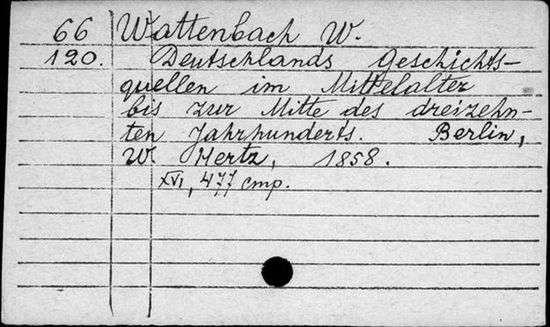 66 Wattenbach W.
120. Deutschlands Geschichts-
quellen im Mittelalter
bis zur Mitte des dreizehn-
ten Jahrhunderts. Berlin,
W. Hertz, 1858.
XVI, 477 cmp.